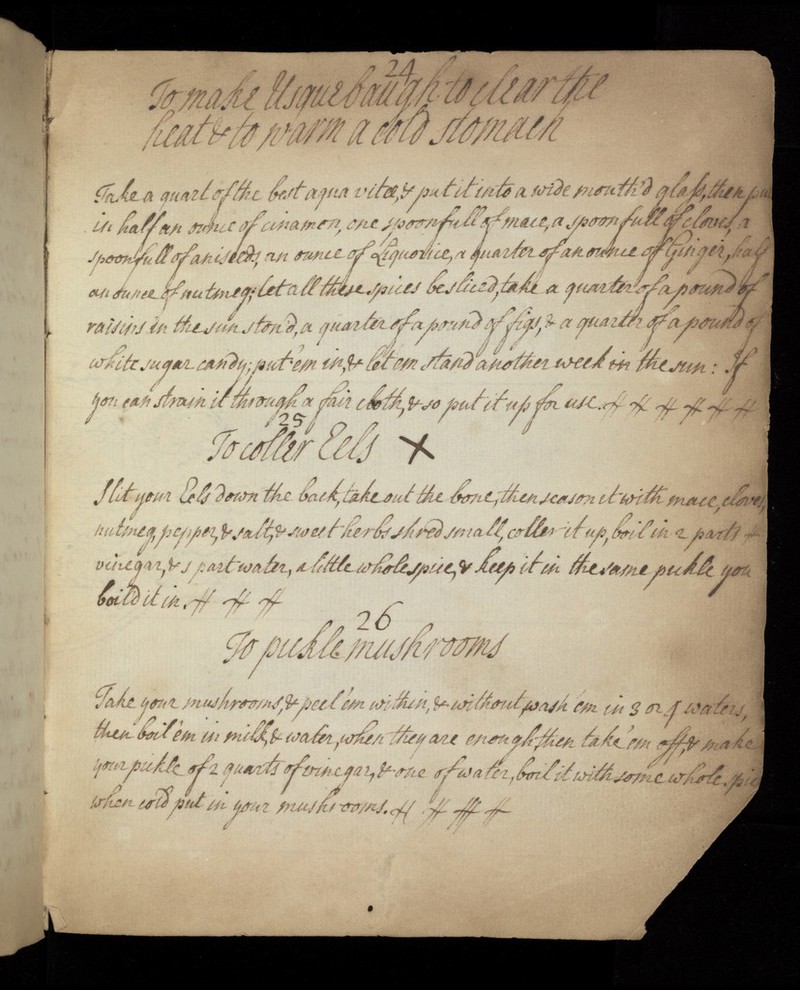 24
To make Usquebaugh to clear the
heat & to warm a cold stomach
Take a quart of the best aqua vitæ, & put it into a wide mouth'd glaſs, then put
in half an ounce of cinamon, one spoonfull of mace, a spoonfull of cloves, a
spoonfull of aniseeds, an ounce of Liquorice, a quarter of an ounce of Ginger, half
an ounce of nutmeg; let all these spices be sliced, take a quarter of a pound of
raisins in the sun ston'd, a quarter of a pound of figs, & a quarter of a pound of
white sugar candy; put 'em in, & let em stand another week in the sun: If
you can strain it through a fair cloth, & so put it up for use.
25
To coller Eels X
Slit your Eels down the back, take out the bone, then season it with mace, cloves,
nutmeg, pepper, & salt, & sweet herbs shred small, coller it up, boil in 2 parts
vinegar, & 1 part water, a little whole spice, & keep it in the same pickle you
boild it in.
26
To pickle mushrooms
Take your mushrooms, & peel 'em within, & without, wash 'em in 3 or 4 waters,
then boil 'em in milk, & water, when they are enough then take 'em off, & make
your pickle of 2 quarts of vinegar, & one of water, boil it with some whole spice
when cold put in your mushrooms.